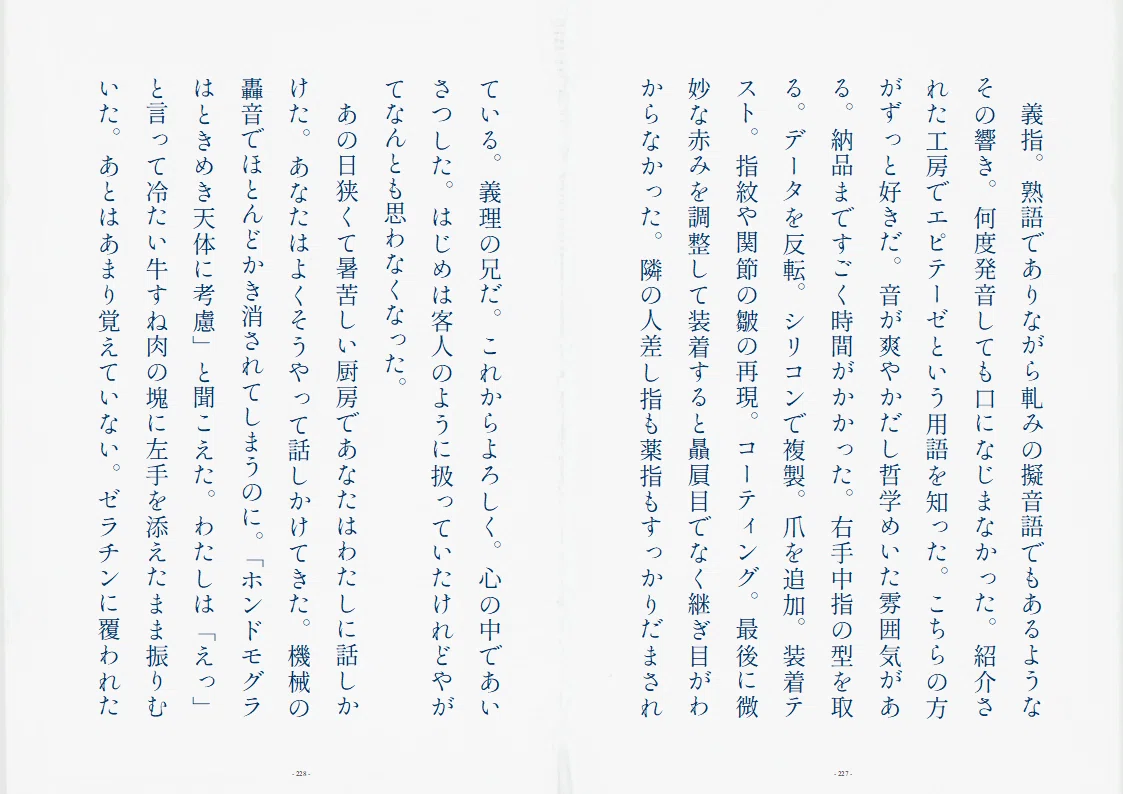 義指。熟語でありながら軋みの擬音語でもあるような
その響き。何度発音しても口になじまなかった。紹介さ
れた工房でエピテーゼという用語を知った。こちらの方
がずっと好きだ。音が爽やかだし哲学めいた雰囲気があ
る。納品まですごく時間がかかった。右手中指の型を取
る。データを反転。シリコンで複製。爪を追加。装着テ
スト。指紋や関節の皺の再現。コーティング。最後に微
妙な赤みを調整して装着すると贔屓目でなく継ぎ目がわ
からなかった。隣の人差し指も薬指もすっかりだまされ
- 227 -
ている。義理の兄だ。これからよろしく。心の中であい
さつした。はじめは客人のように扱っていたけれどやが
てなんとも思わなくなった。
あの日狭くて暑苦しい厨房であなたはわたしに話しか
けた。あなたはよくそうやって話しかけてきた。機械の
轟音でほとんどかき消されてしまうのに。「ホンドモグラ
はときめき天体に考慮」と聞こえた。わたしは「えっ」
と言って冷たい牛すね肉の塊に左手を添えたまま振りむ
いた。あとはあまり覚えていない。ゼラチンに覆われた
- 228 -